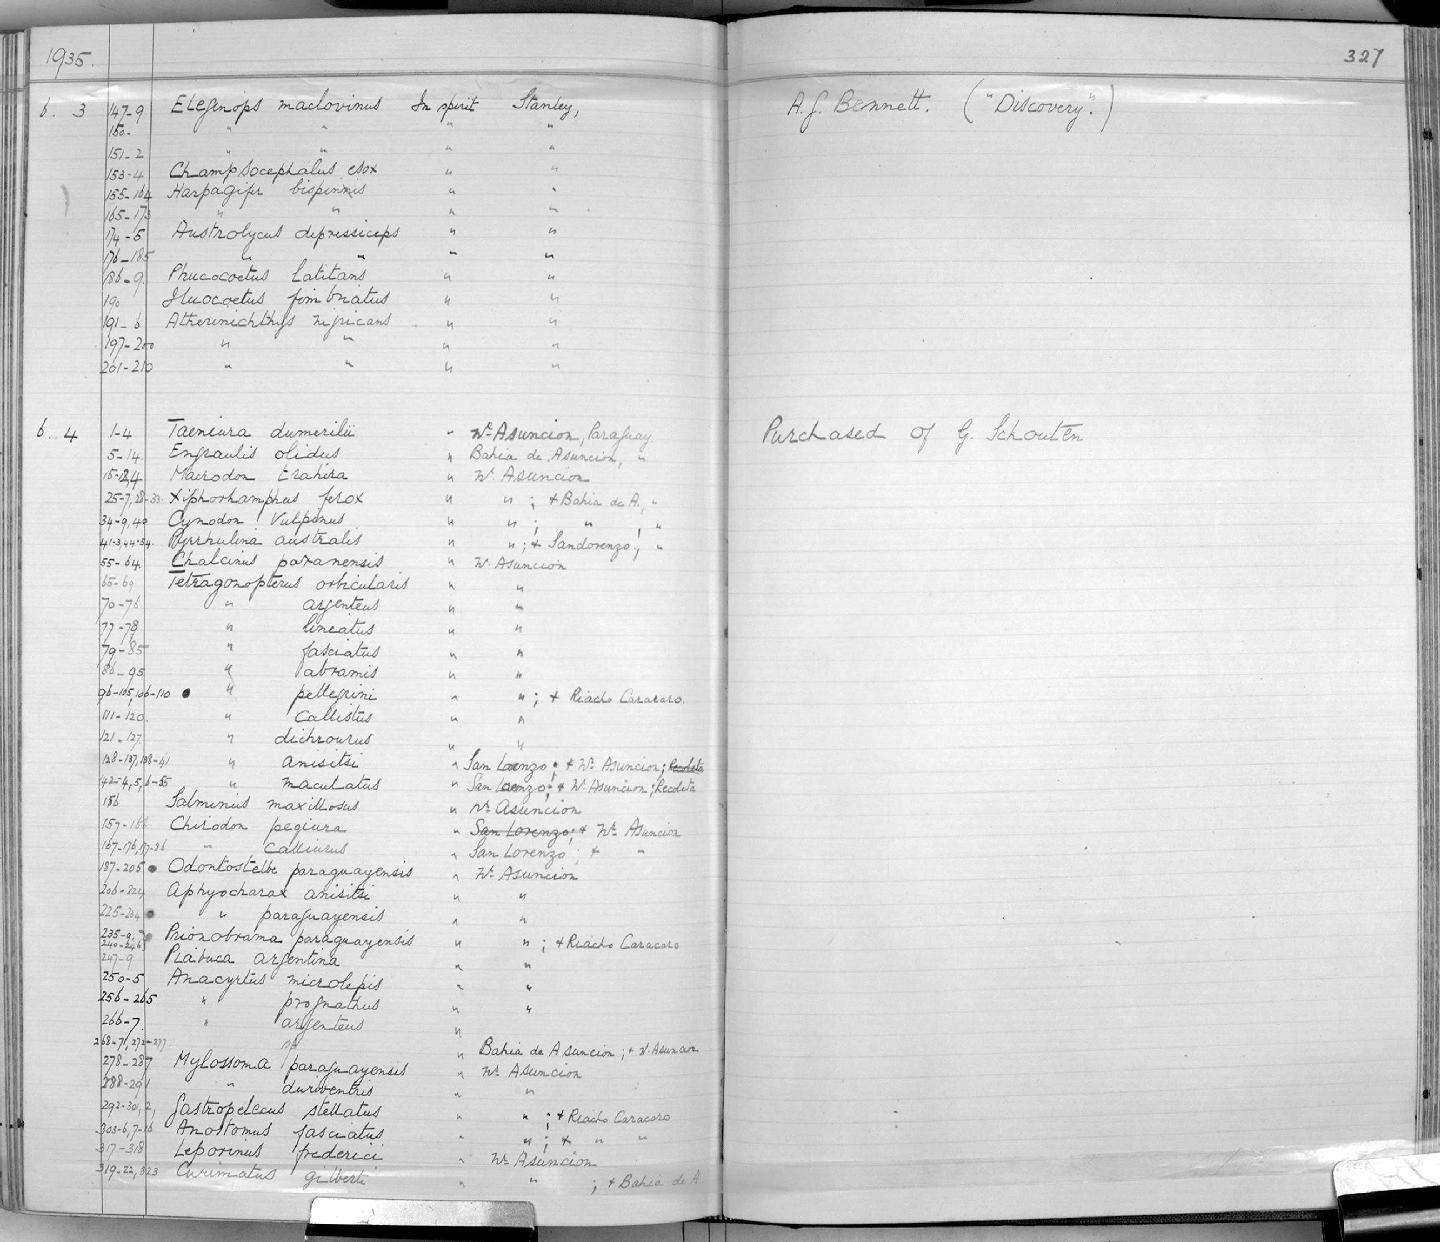 1935. 327
6. 3 147-9 Eleginops maclovinus In spirit Stanley, A. G. Bennett. ("Discovery.")
150. " " " "
151-2 " " " "
153-4 Champsocephalus esox " "
155-164 Harpagifer bispinnis " "
165-173 " " " "
174-5 Austrolycus depressiceps " "
176-185 " " " "
186-9. Phucocoetus latitans " "
190 Iluocoetus fimbriatus " "
191-6 Atherinichthys nigricans " "
197-200 " " " "
201-210 " " " "
6. 4 1-4 Taeniura dumerilii " Nr. Asuncion, Paraguay Purchased of G. Schouten
5-14. Engraulis olidus " Bahia de Asuncion, "
Macrodon trahira " Nr. Asuncion
25-7, 28-33. Xiphorhamphus ferox " " ; + Bahia de A., "
34-9, 40 Cynodon vulpinus " " ; " , "
Pyrrhulina australis " " ; + Sandorenzo; "
55-64 Chalcinus paranensis " Nr. Asuncion
65-69 Tetragonopterus orbicularis " "
70-76 " argenteus " "
77-78 " lineatus " "
79-85 " fasciatus " "
86-95 " abramis " "
96-105, 106-110 " pellegrini " " ; + Riacho Caracaro.
111-120. " callistus " "
121-127. " dichrourus " "
128-137, 138-41 " anisitsi " San Lorenzo; + Nr. Asuncion; Recoleta
" maculatus " San Lorenzo; + Nr. Asuncion; Recoleta
156 Salminus maxillosus " Nr. Asuncion
157-166 Chirodon pequira " San Lorenzo; + Nr. Asuncion
167-176, 77-86 " calliurus " San Lorenzo; + "
187-205 Odontostelbe paraguayensis " Nr. Asuncion
206-224 Aphyocharax anisitsi " "
225-234 " paraguayensis " "
235-9, 240-246 Prionobrama paraguayensis " " ; + Riacho Caracaro
247-9 Piabuca argentina " "
250-5 Anacyrtus microlepis " "
256-265 " prognathus " "
266-7. " argenteus "
268-71, 272-277 " Bahia de Asuncion; + Nr. Asuncion
278-287 Mylossoma paraguayensis " Nr. Asuncion
288-291 " duriventris " "
292-301, 2, Gastropelecus stellatus " " ; + Riacho Caracaro
303-6, 7-16 Anostomus fasciatus " " ; + " "
317-318 Leporinus frederici " Nr. Asuncion
319-22, 323 Curimatus gilberti " " ; + Bahia de A.